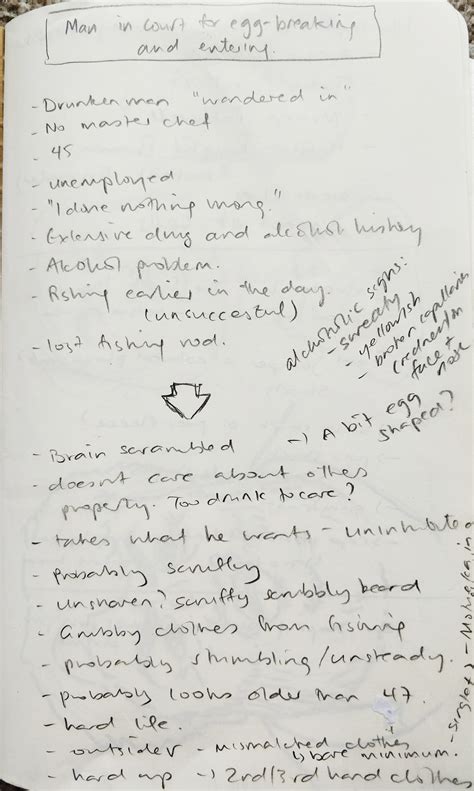 Man in court for egg-breaking
and entering.
- Drunken man "wandered in"
- No master chef
- 45
- unemployed
- "I done nothing wrong."
- Extensive drug and alcohol history
- Alcohol problem.
- Fishing earlier in the day.
(unsuccesful)
- lost fishing rod.
alcoholic signs:
- sweaty
- yellowish
- broken capillaries
(redness) on
face +
nose
- Brain scrambled
-> A bit egg
shaped?
- doesnt care about others
property. Too drunk to care?
- takes what he wants - uninhibited
- probably scruffy
- unshaven? scruffy scrubbly beard
- Grubby clothes from fishing
- probably stumbling/unsteady.
- probably looks older than 47.
- hard life.
- outsider - mismatched clothes
is bare minimum.
- hard up -> 2nd/3rd hand clothes
- singlet?